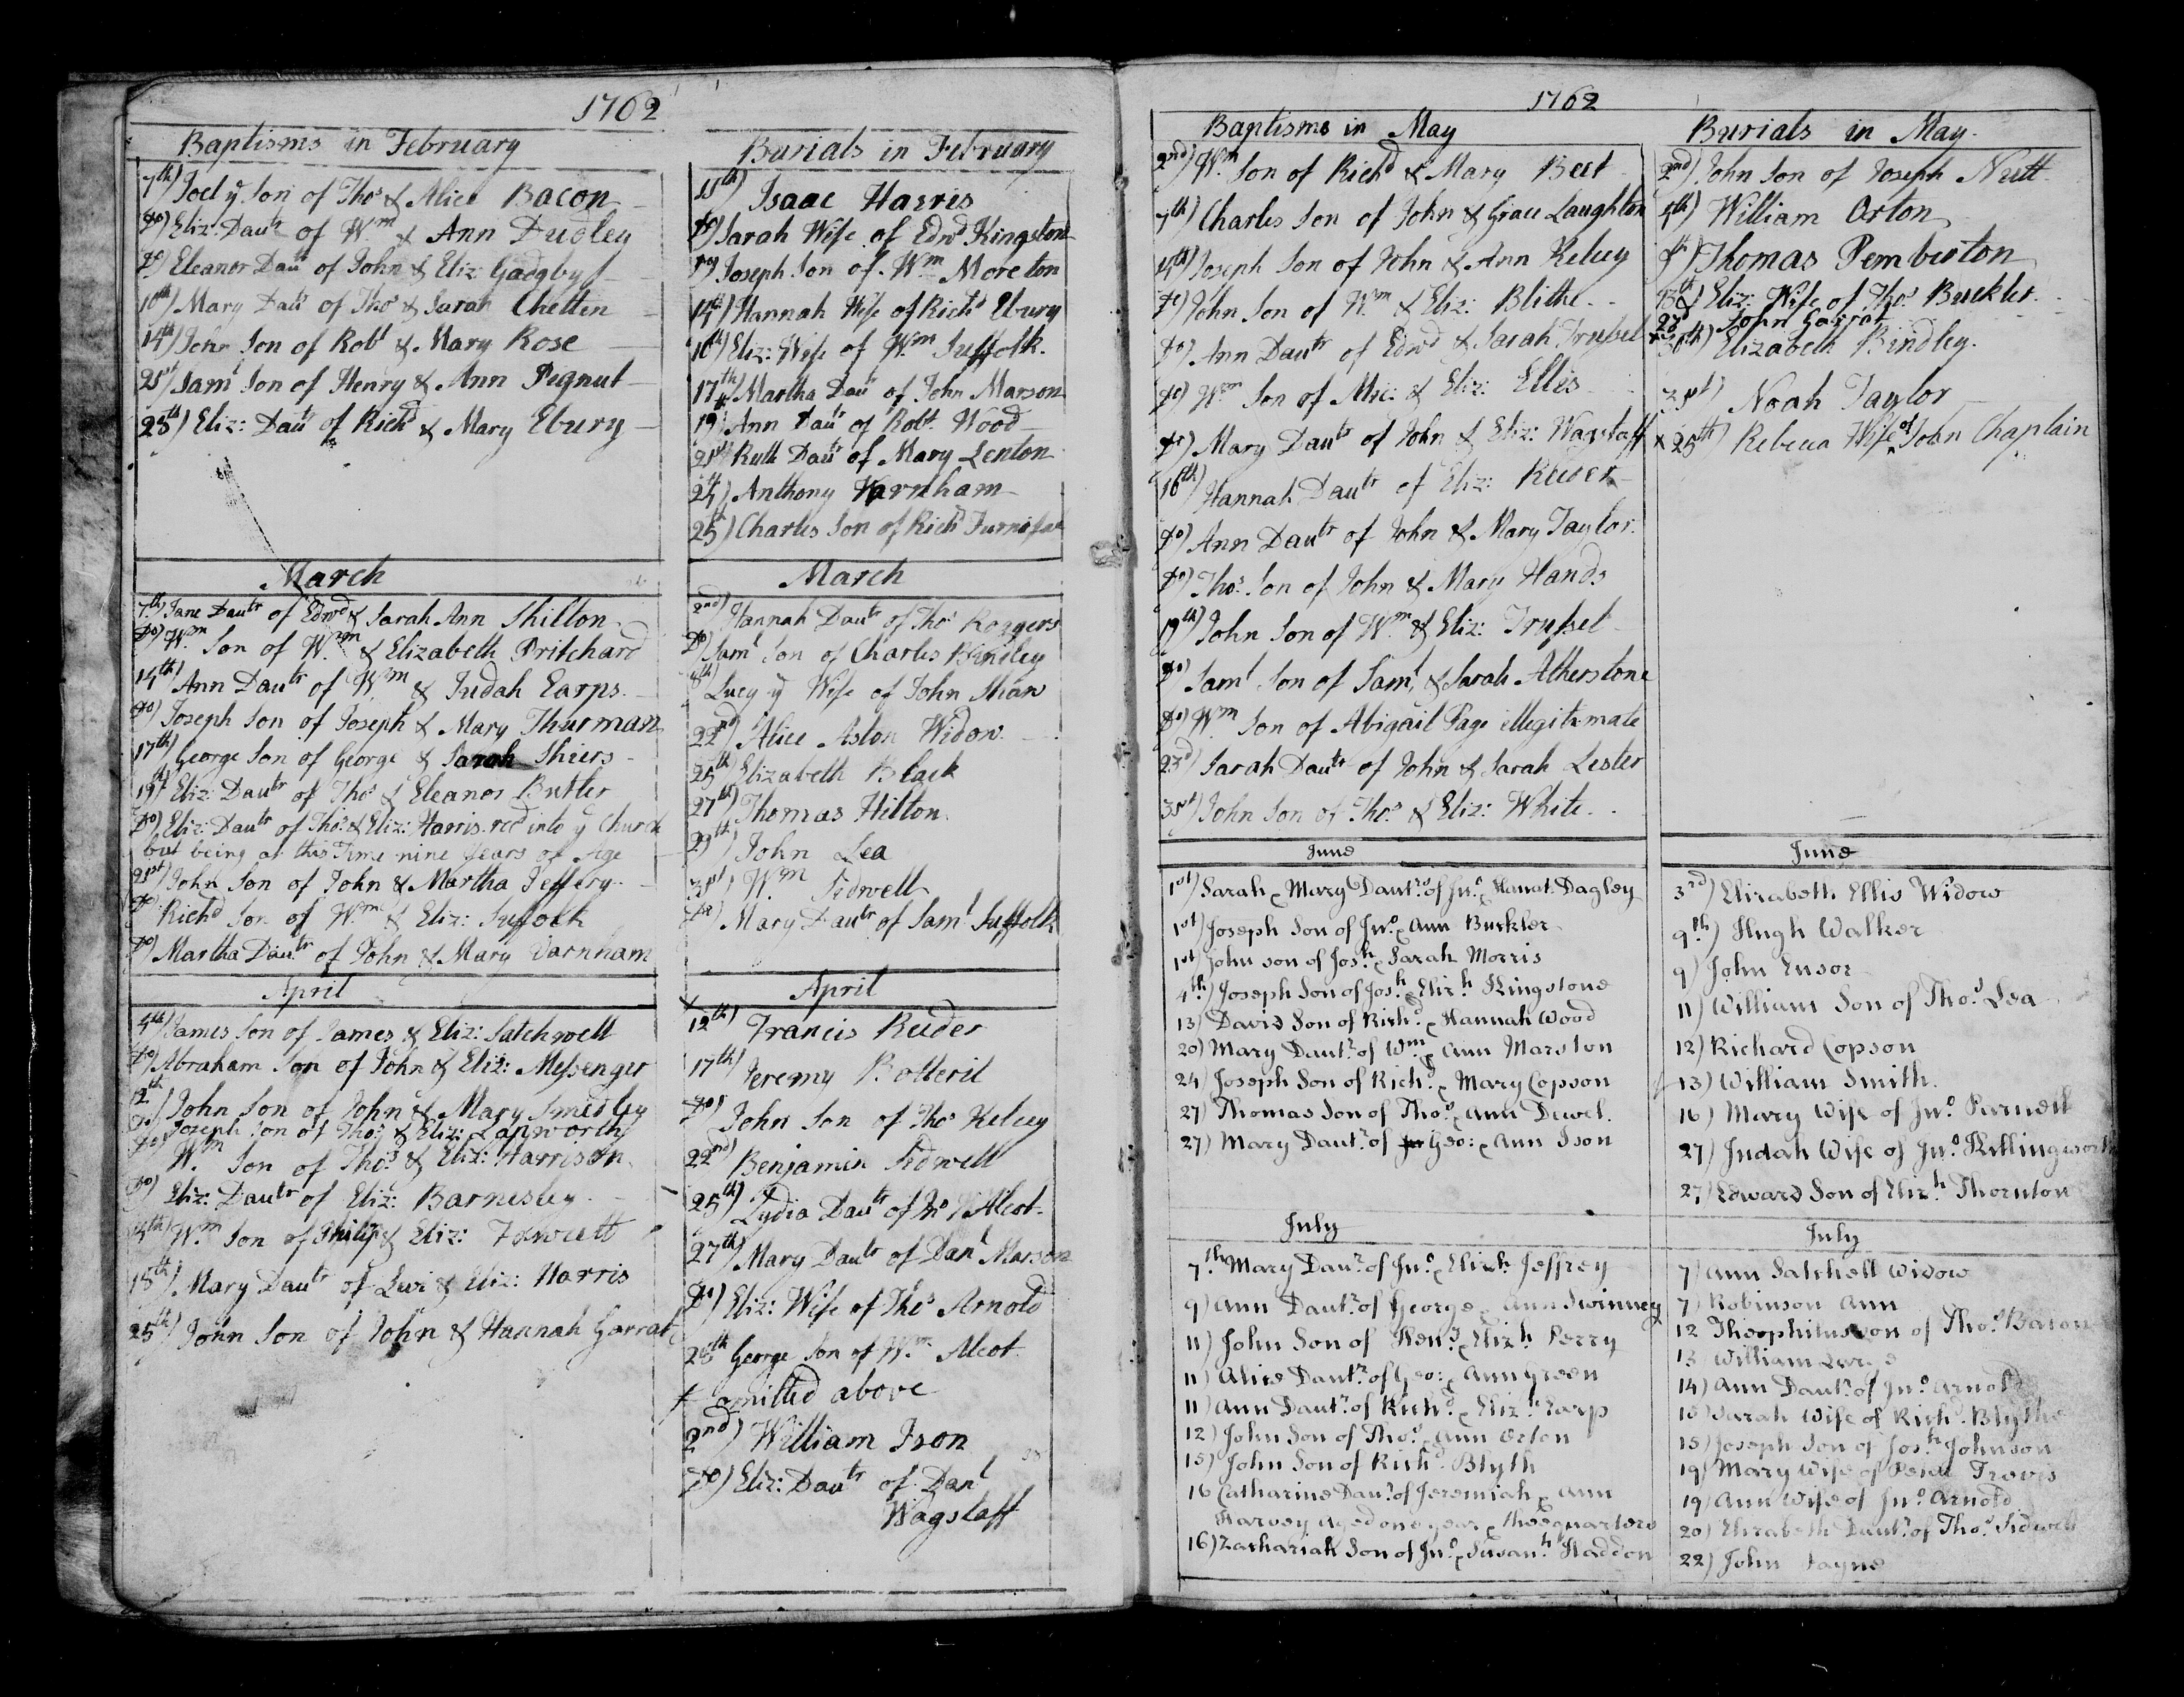 1762
Baptisms in February
7th) Joel ye Son of Thos & Alice Bacon
Do) Eliz: Dautr of Wm & Ann Dudley
Do) Eleanor Dautr of John & Eliz: Gadgby
10th) Mary Dautr of Thos & Sarah Chetten
14th) John Son of Robt & Mary Rose
21st) Saml Son of Henry & Ann Pegnut
28th) Eliz: Dautr of Richd & Mary Ebury
March
7th) Jane Dautr of Edwd & Sarah Ann Shilton
Do) Wm Son of Wm & Elizabeth Pritchard
14th) Ann Dautr of Wm & Judah Earps
Do) Joseph Son of Joseph & Mary Thurman
17th) George Son of George & Sarah Shiers
19th) Eliz: Dautr of Thos & Eleanor Butler
Do) Eliz: Dautr of Thos & Eliz: Harris recd into ye Church
but being at this Time nine Years of Age
21st) John Son of John & Martha Jeffery
Do) Richd Son of Wm & Eliz: Suffolk
Do) Martha Dautr of John & Mary Varnham
April
4th) James Son of James & Eliz: Satchwell
Do) Abraham Son of John & Eliz: Messenger
12th) John Son of John & Mary Smedley
Do) Joseph Son of Thos & Eliz: Lapworth
Do) Wm Son of Thos & Eliz: Harrison
Do) Eliz: Dautr of Eliz: Barnesley
14th) Wm Son of Philip & Eliz:
18th) Mary Dautr of Levi & Eliz: Harris
25th) John Son of John & Hannah Garrat
Burials in February
11th) Isaac Harris
Do) Sarah Wife of Edwd Kingstone
Do) Joseph Son of Wm Moreton
14th) Hannah Wife of Richd Ebury
16th) Eliz: Wife of Wm Suffolk.
17th) Martha Dautr of John Marson
19th) Ann Dautr of Robt Wood
21st) Ruth Dautr of Mary Lenton
24th) Anthony Varnham
25th) Charles Son of Richd
March
2nd) Hannah Dautr of Thos Roggers
Do) Saml Son of Charles Binsley
8th) Lucy ye Wife of John Shaw
22nd) Alice Aston Widow
25th) Elizabeth Black
27th) Thomas Hilton
29th) John Lea
31st) Wm Sidwell
Do) Mary Dautr of Saml Suffolk
April
x
12th) Francis Reeder
17th) Jeremy Botteril
Do) John Son of Thos Kelcey
22nd) Benjamin Sidwell
25th) Lydia Dautr of Alcot
27th) Mary Dautr of Danl Marson
Do) Eliz: Wife of Thos Arnold
28th George Son of Wm Alcot
x omitted above
2nd) William Ison
Do) Eliz: Dautr of Danl
Wagstaff
1762
Baptisms in May
2nd) Wm Son of Richd & Mary Beet
7th) Charles Son of John & Grace Laughton
14th) Joseph Son of John & Ann Kelcey
Do) John Son of Wm & Eliz: Blithe
Do) Ann Dautr of Edwd & Sarah Trussel
Do) Wm Son of Mic: & Eliz: Ellis
Do) Mary Dautr of John & Eliz: Wagstaff
16th) Hannah Dautr of Eliz: Reeder
Do) Ann Dautr of John & Mary Taylor.
Do) Thos Son of John & Mary Hands
19th) John Son of Wm & Eliz: Trussel
Do) Saml Son of Saml & Sarah Atherstone
Do) Wm Son of Abigail Page illegitimate
23rd) Sarah Dautr of John & Sarah Lester
31st) John Son of Thos & Eliz: White
June
1st) Sarah & Mary Dautrs of Jno & Hanah Dagley
1st) Joseph Son of Jno & Ann Buckler
1st) John son of Josh & Sarah Morris
4th) Joseph Son of Josh & Elizh Kingstone
13) David Son of Richd & Hannah Wood
20) Mary Dautr of Wm & Ann Marston
24) Joseph Son of Richd & Mary Copson
27) Thomas Son of Thos & Ann Dewel.
27) Mary Dautr of Jno Geo: & Ann Ison
July
7th Mary Daur of Jno & Elizh Jeffrey
9) Ann Dautr of George & Ann Swinney
11) John Son of Heny & Elizh Perry
11) Alice Dautr of Geo: & Ann Green
11) Ann Dautr of Richd & Elizh Earp
12) John Son of Thos & Ann Orton
15) John Son of Richd Blyth
16 Catharine Daur of Jeremiah & Ann
Harvey Aged one year & three quarters
16) Zachariah Son of Jno & Susanh Haddon
Burials in May
2nd) John Son of Joseph Nutt
4th) William Orton
th) Thomas Pemberton
13th) Eliz: Wife of Thos Buckler
27 John Garrat
30th) Elizabeth Bindley.
31st) Noah Taylor
x 25th) Rebecca Wife of John Chaplain
June
3rd) Elizabeth Ellis Widow
9th) Hugh Walker
9) John Ensor
11) William Son of Thos Lea
12) Richard Copson
13) William Smith.
16) Mary Wife of Jno Parnell
27) Judah Wife of Jno Killingworth
27) Edward Son of Elizh Thornton
July
7) Ann Satchell Widow
7) Robinson Ann
12 Theophilus Son of Thos Bacon
13 William
14) Ann Dautr of Jno Arnold
15 Sarah Wife of Richd Blythe
15) Joseph Son of Josh Johnson
19) Mary Wife of Travis
19) Ann Wife of Jno Arnold
20) Elizabeth Dautr of Thos Sidwell
22) John Payne